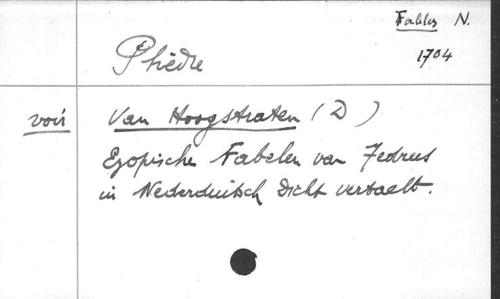 Fables N.
1704
Phèdre
voir Van Hoogstraten (D)
Ezopische Fabelen van Fedrus
in Nederduitsch Dicht vertaelt.